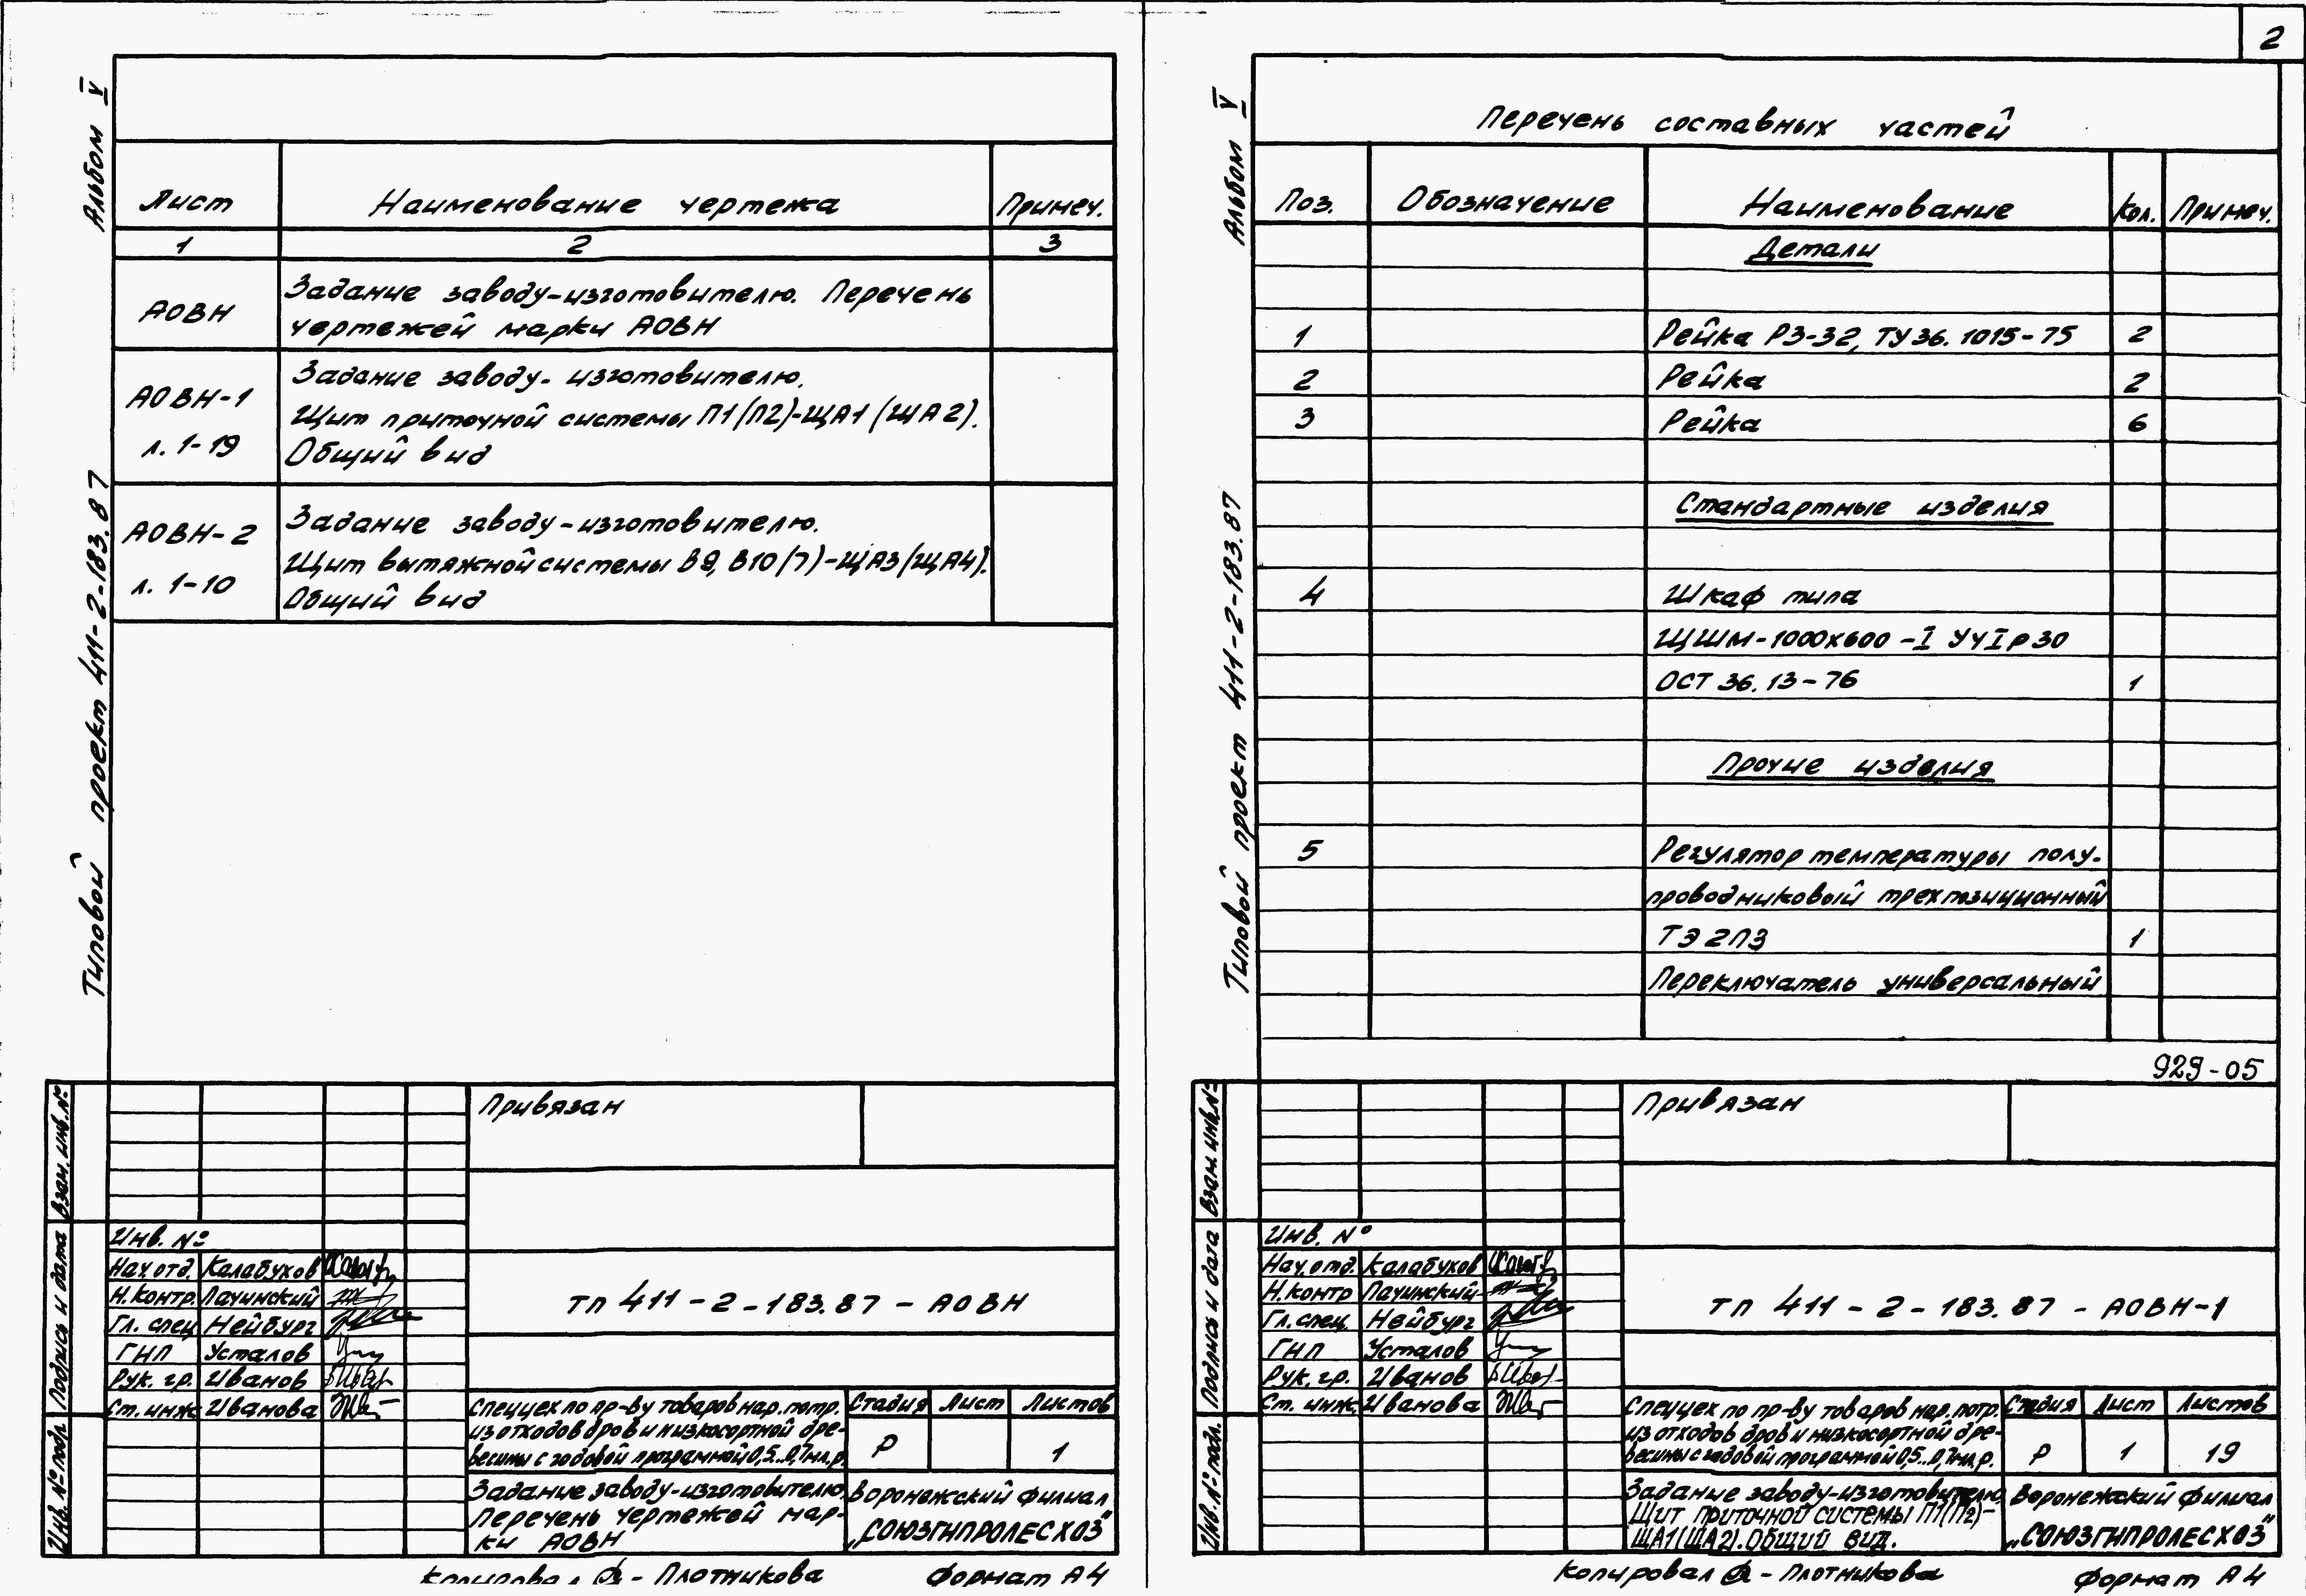 Альбом V
Типовой проект 411-2-183.87
Лист Наименование чертежа Примеч.
1 2 3
АОВН
Задание заводу-изготовителю. Перечень
чертежей марки АОВН
АОВН-1
л. 1-19
Задание заводу-изготовителю.
Щит приточной системы П1(П2)-ЩА1(ЩА2).
Общий вид
АОВН-2
л. 1-10
Задание заводу-изготовителю.
Щит вытяжной системы В9, В10(7)-ЩА3(ЩА4).
Общий вид
Взам. инв. №
Подпись и дата
Инв. № подл.
Привязан
Инв. №
Нач. отд. Калабухов
Н. контр. Лачинский
Гл. спец Нейбург
ГНП Усталов
Рук. гр. Иванов
Ст. инж Иванова
тп 411-2-183.87-АОВН
Спеццех по пр-ву товаров нар. потр.
из отходов дров и низкосортной дре-
весины с годовой программой 0,5..0,7мл.р.
Стадия Лист Листов
Р 1
Задание заводу-изготовителю.
Перечень чертежей мар-
ки АОВН
Воронежский филиал
„СОЮЗГИПРОЛЕСХОЗ"
Копировал - Плотникова Формат А4
2
Альбом V
Типовой проект 411-2-183.87
Перечень составных частей
Поз. Обозначение Наименование Кол. Примеч.
Детали
1 Рейка Р3-32, ТУ 36.1015-75 2
2 Рейка 2
3 Рейка 6
Стандартные изделия
4 Шкаф типа
ЩШМ-1000х600-I УЧIр30
ОСТ 36.13-76 1
Прочие изделия
5 Регулятор температуры полу-
проводниковый трехпозиционный
ТЭ2П3 1
Переключатель универсальный
929-05
Взам. инв. №
Подпись и дата
Инв. № подл.
Привязан
Инв. №
Нач. отд. Калабухов
Н. контр Лачинский
Гл. спец. Нейбург
ГНП Усталов
Рук. гр. Иванов
Ст. инж. Иванова
тп 411-2-183.87-АОВН-1
Спеццех по пр-ву товаров нар. потр.
из отходов дров и низкосортной дре-
весины с годовой программой 0,5..0,7мл.р.
Стадия Лист Листов
Р 1 19
Задание заводу-изготовителю.
Щит приточной системы П1(П2)-
ЩА1(ЩА2). Общий вид.
Воронежский филиал
„СОЮЗГИПРОЛЕСХОЗ"
Копировал - Плотникова Формат А4